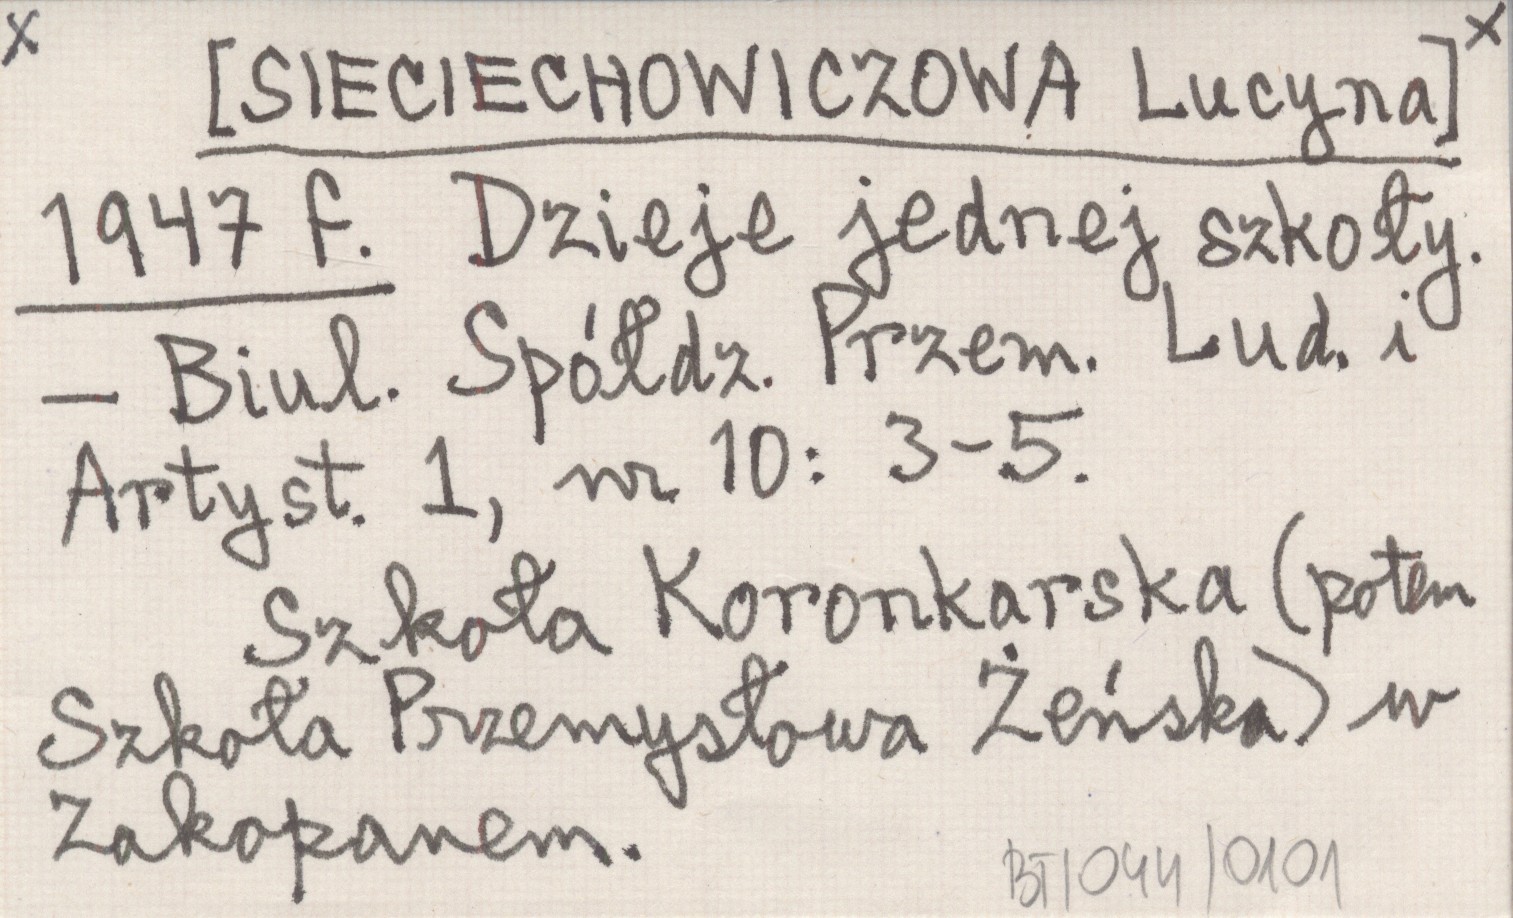 x [SIECIECHOWICZOWA Lucyna] x
1947 f. Dzieje jednej szkoły.
— Biul. Spółdz. Przem. Lud. i
Artyst. 1, nr 10: 3-5.
Szkoła Koronkarska (potem
Szkoła Przemysłowa Żeńska) w
Zakopanem.
BT/044/0101